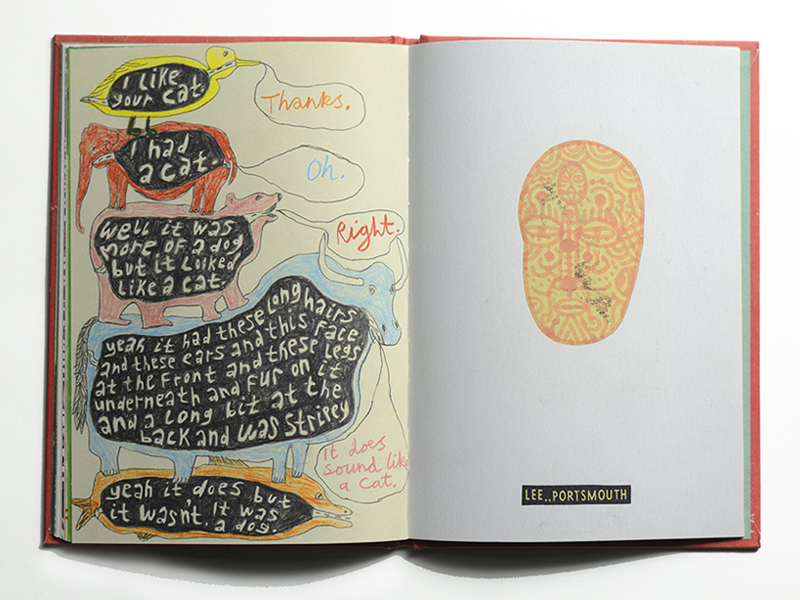 I like
your cat.
Thanks.
I had
a cat.
Oh.
Well it was
more of a dog
but it looked
like a cat.
Right.
yeah it had these long hairs
and these ears and this face
at the front and these legs
underneath and fur on it
and a long bit at the
back and was stripey
It does
sound like
a cat.
yeah it does but
it wasn't. It was
a dog.
LEE..PORTSMOUTH